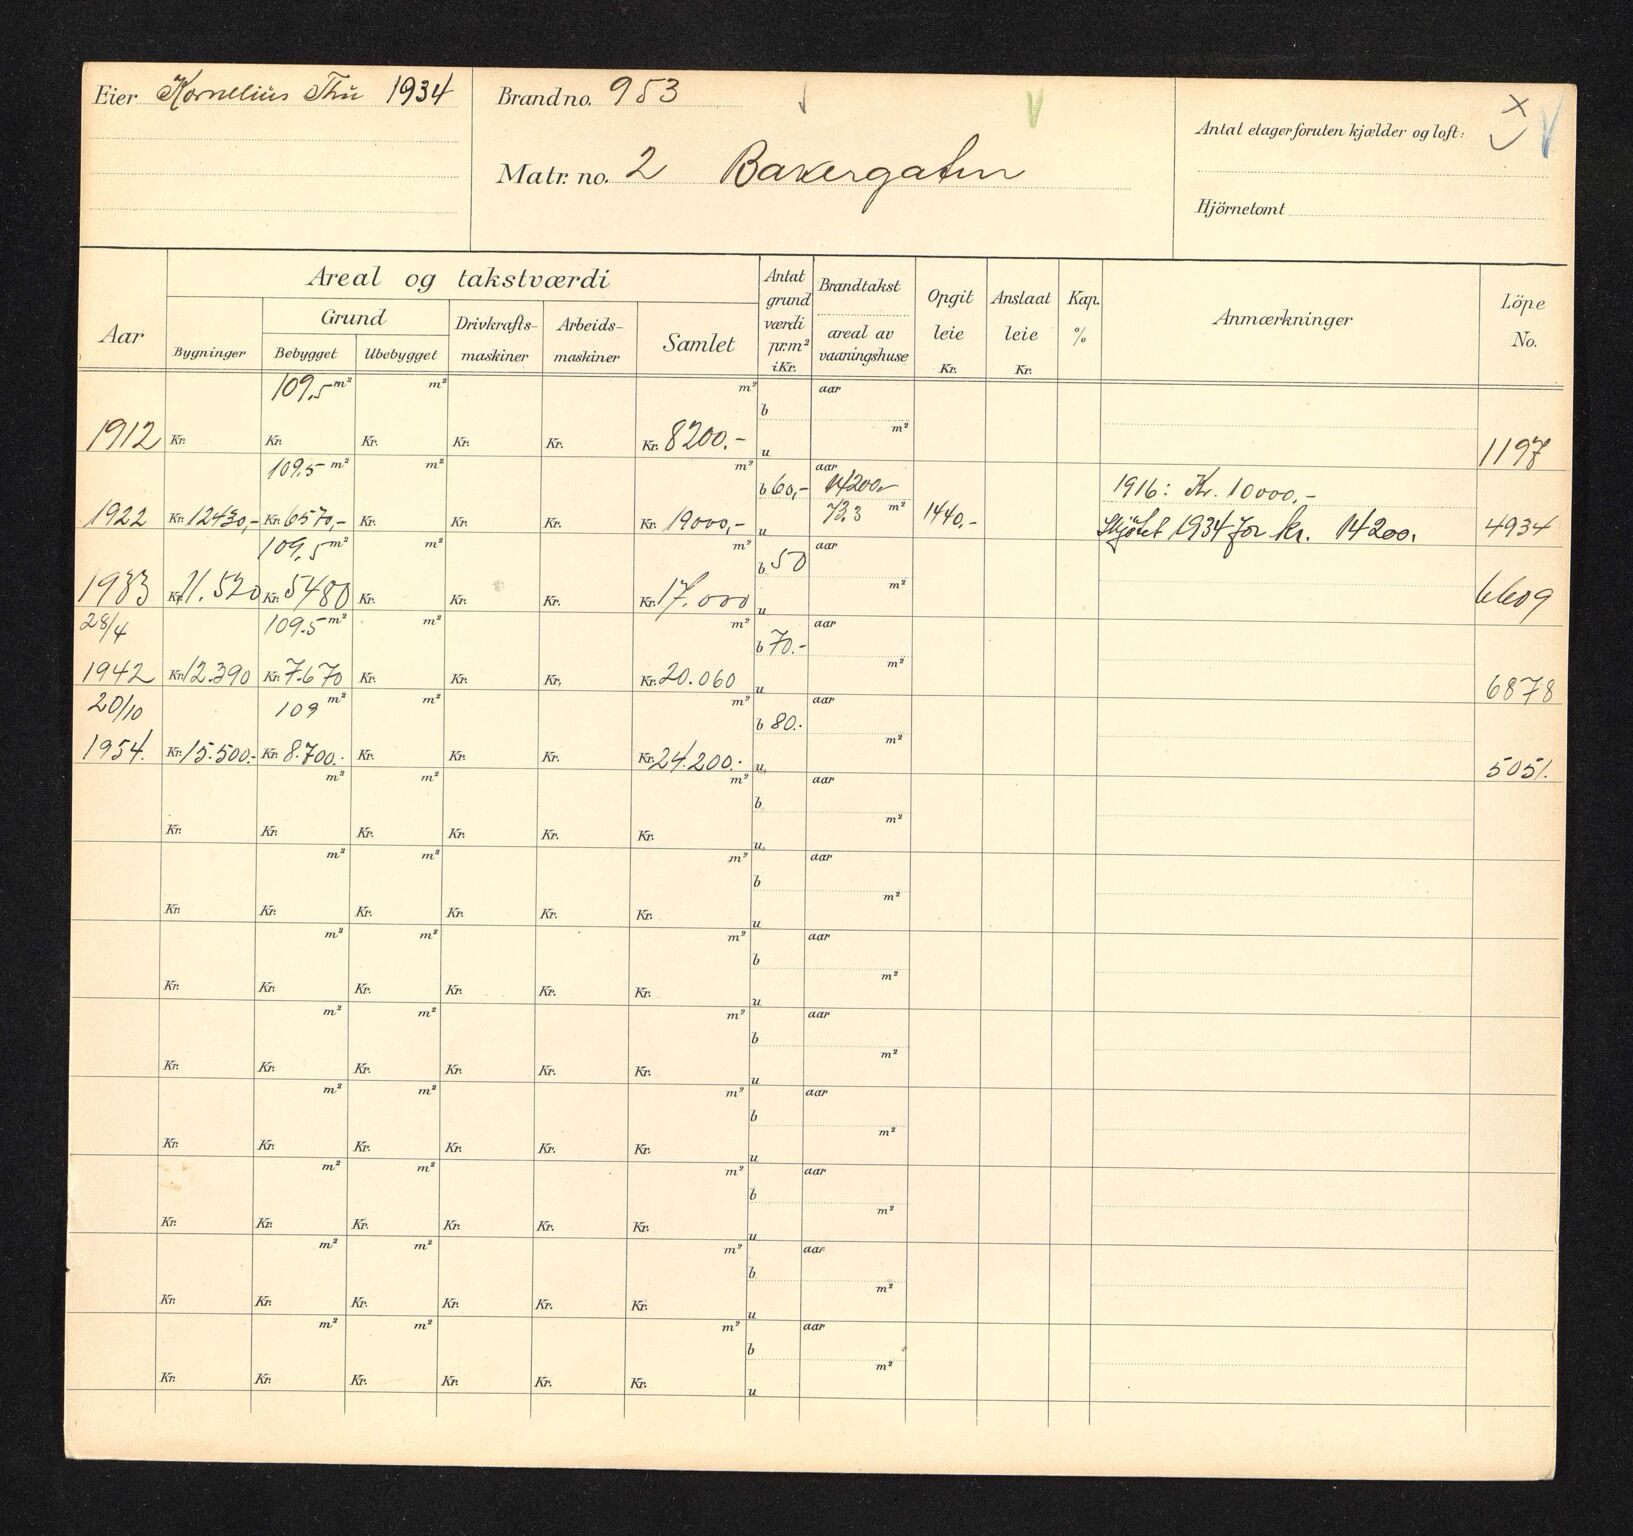 Eier Kornelius Thu 1934
Brandno. 953
Matr. no. 2 Bakergaten
Antal etager foruten kjælder og loft:
Hjörnetomt
Aar
Areal og takstværdi
Bygninger
Grund
Bebygget
Ubebygget
Drivkrafts-
maskiner
Arbeids-
maskiner
Samlet
Antat
grund
værdi
pr. m²
i Kr.
Brandtakst
areal av
vaaningshuse
Opgit
leie
Kr.
Anslaat
leie
Kr.
Kap.
%
Anmærkninger
Löpe
No.
109,5 m² m² m² aar
b
1912 Kr. Kr. Kr. Kr. Kr. Kr. 8200.- u m² 1197
109.5 m² m² m² b 60,- aar 14200,- 1916: Kr. 10000,-
1922 Kr. 12430,- Kr. 6570,- Kr. Kr. Kr. Kr. 19000,- u 73.3 m² 1440.- Skjøtet 1934 for kr. 14200. 4934
109,5 m² m² m² b 50 aar
1933 Kr. 11.520 Kr. 5480 Kr. Kr. Kr. Kr. 17.000 u m² 6609
28/4 109.5 m² m² m² b 70.- aar
1942 Kr. 12.390 Kr. 7.670 Kr. Kr. Kr. Kr. 20.060 u m² 6878
20/10 109 m² m² m² b 80.- aar
1954. Kr. 15.500.- Kr. 8.700.- Kr. Kr. Kr. Kr. 24.200.- u m² 5051.
m² m² m² b aar
Kr. Kr. Kr. Kr. Kr. Kr. u m²
m² m² m² b aar
Kr. Kr. Kr. Kr. Kr. Kr. u m²
m² m² m² b aar
Kr. Kr. Kr. Kr. Kr. Kr. u m²
m² m² m² b aar
Kr. Kr. Kr. Kr. Kr. Kr. u m²
m² m² m² b aar
Kr. Kr. Kr. Kr. Kr. Kr. u m²
m² m² m² b aar
Kr. Kr. Kr. Kr. Kr. Kr. u m²
m² m² m² b aar
Kr. Kr. Kr. Kr. Kr. Kr. u m²
m² m² m² b aar
Kr. Kr. Kr. Kr. Kr. Kr. u m²